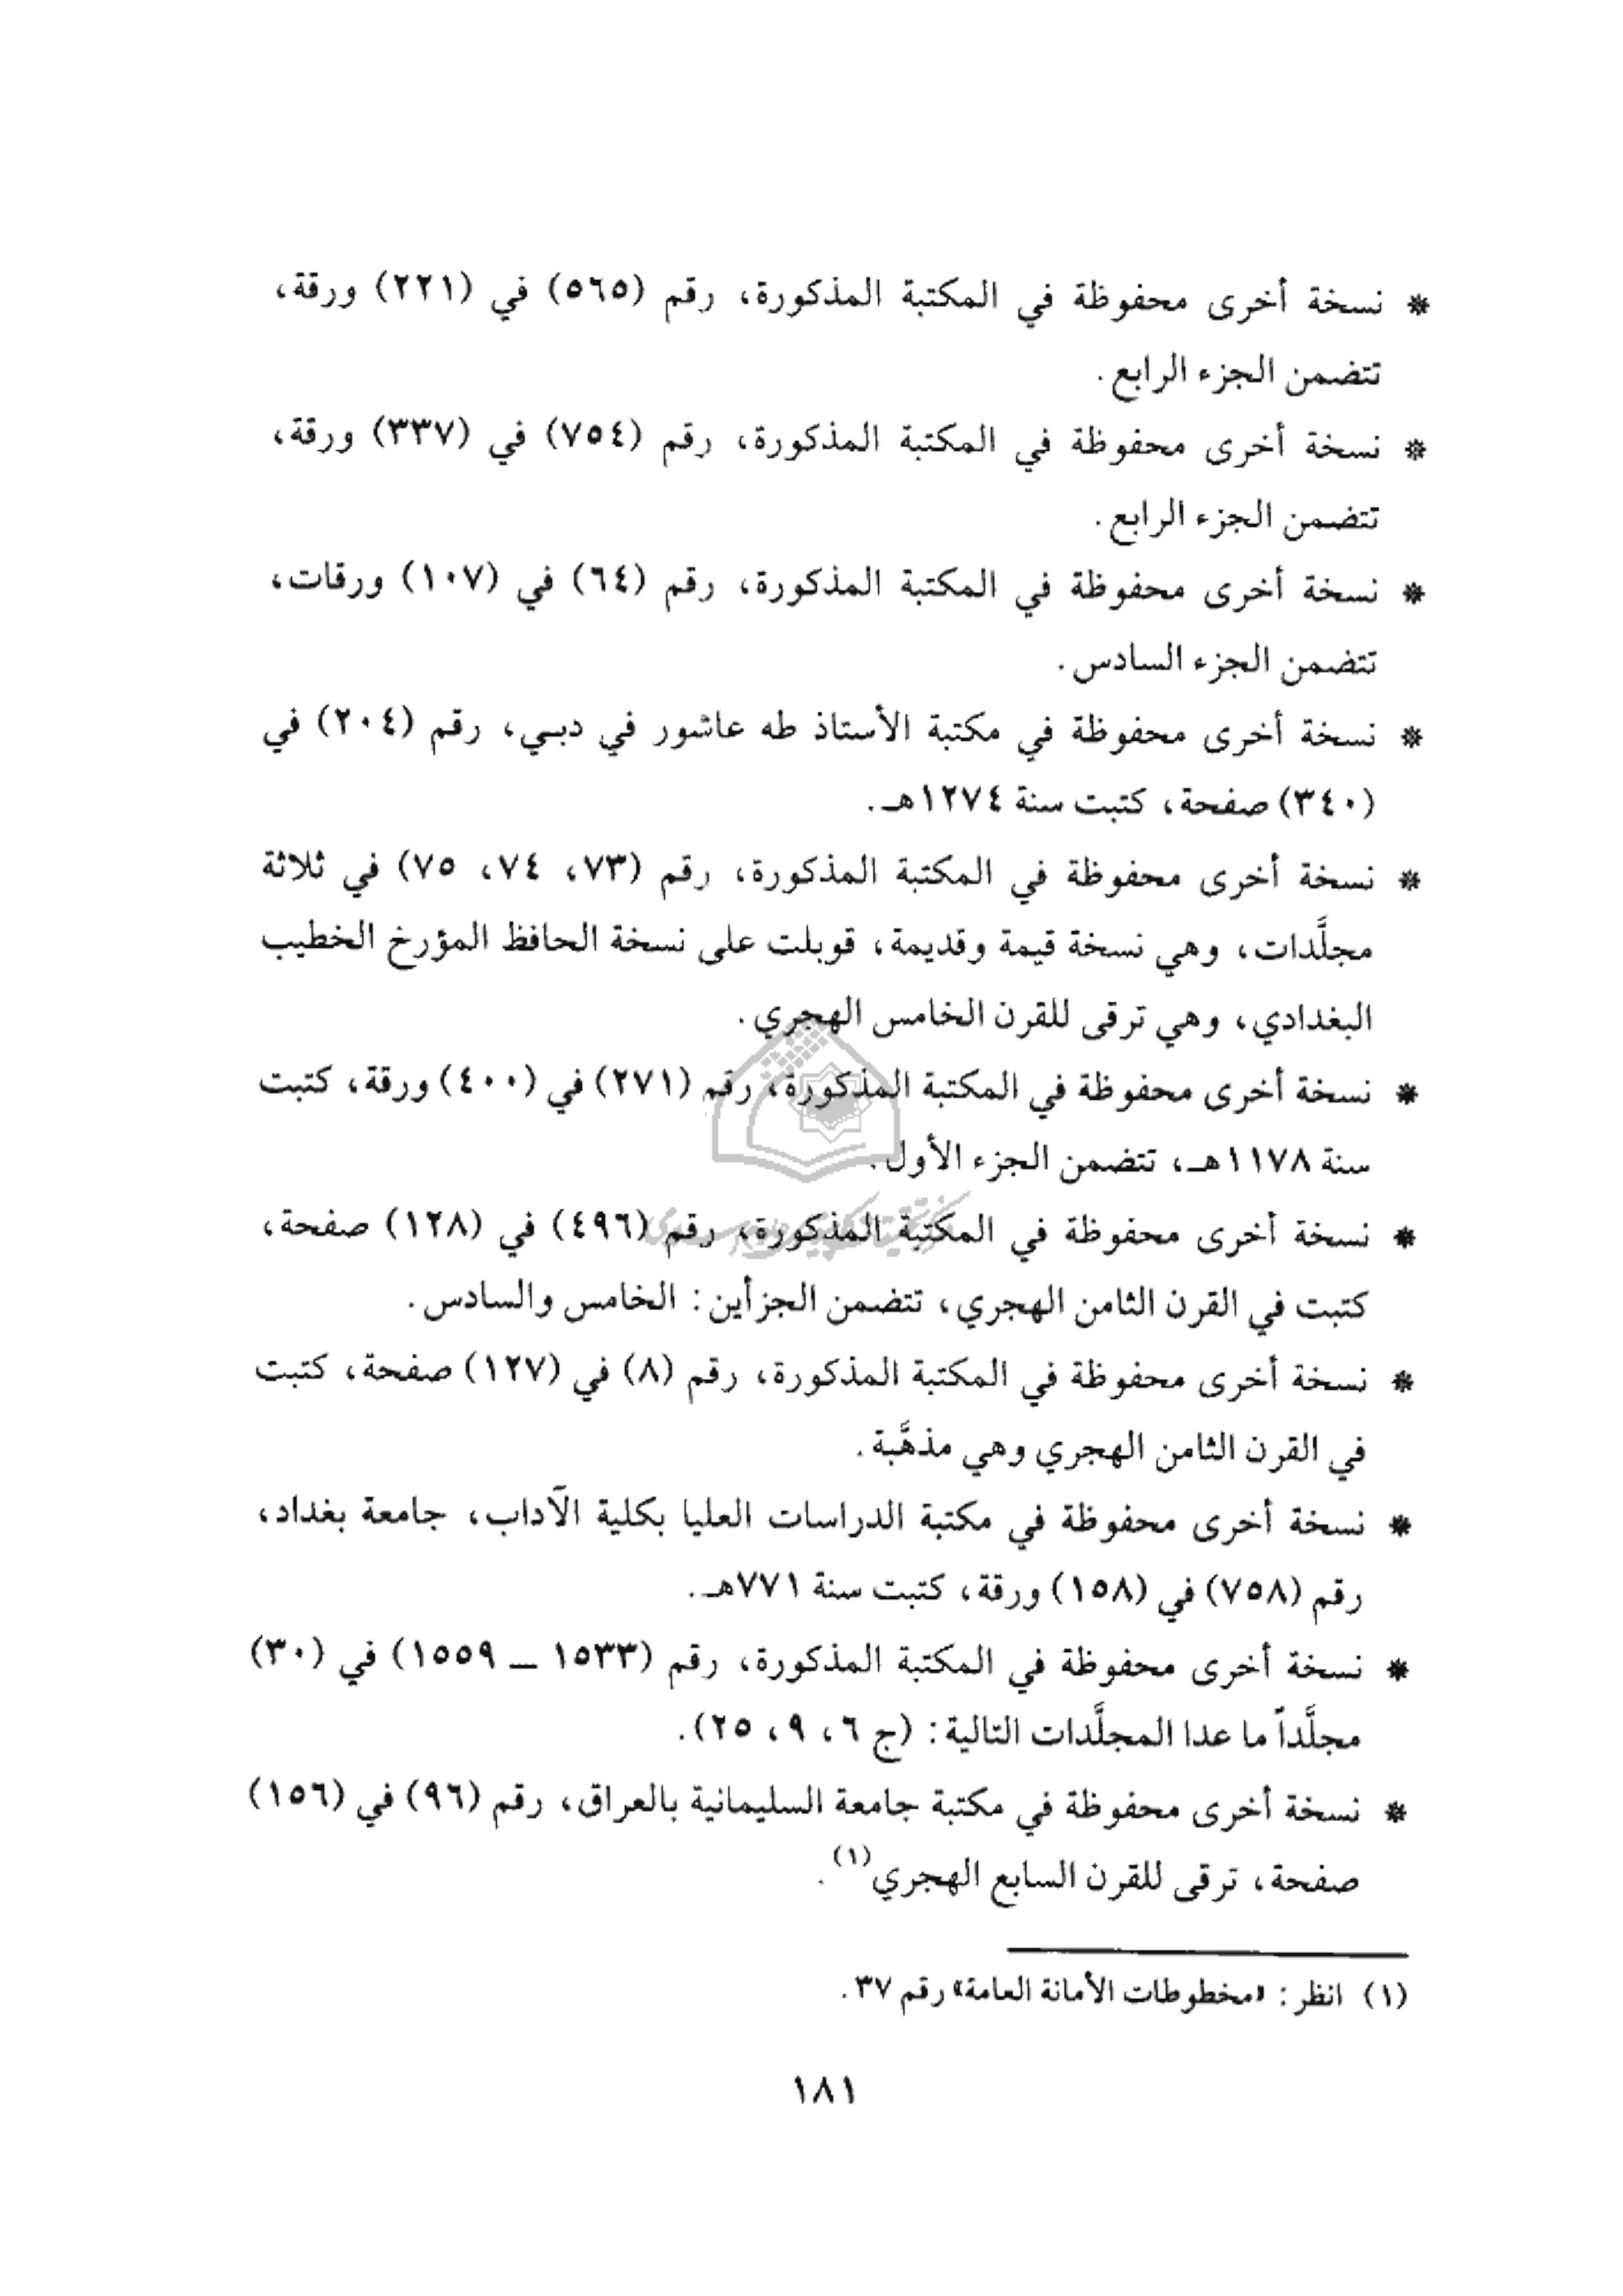 * نسخة أخرى محفوظة في المكتبة المذكورة، رقم (٥٦٥) في (٢٢١) ورقة،
تتضمن الجزء الرابع.
* نسخة أخرى محفوظة في المكتبة المذكورة، رقم (٧٥٤) في (٣٣٧) ورقة،
تتضمن الجزء الرابع.
* نسخة أخرى محفوظة في المكتبة المذكورة، رقم (٦٤) في (١٠٧) ورقات،
تتضمن الجزء السادس.
* نسخة أخرى محفوظة في مكتبة الأستاذ طه عاشور في دبـي، رقم (٢٠٤) في
(٣٤٠) صفحة، كتبت سنة ١٢٧٤هـ.
* نسخة أخرى محفوظة في المكتبة المذكورة، رقم (٧٣، ٧٤، ٧٥) في ثلاثة
مجلَّدات، وهي نسخة قيمة وقديمة، قوبلت على نسخة الحافظ المؤرخ الخطيب
البغدادي، وهي ترقى للقرن الخامس الهجري.
* نسخة أخرى محفوظة في المكتبة المذكورة، رقم (٢٧١) في (٤٠٠) ورقة، كتبت
سنة ١١٧٨هـ، تتضمن الجزء الأول.
* نسخة أخرى محفوظة في المكتبة المذكورة، رقم (٤٩٦) في (١٢٨) صفحة،
كتبت في القرن الثامن الهجري، تتضمن الجزأين: الخامس والسادس.
* نسخة أخرى محفوظة في المكتبة المذكورة، رقم (٨) في (١٢٧) صفحة، كتبت
في القرن الثامن الهجري وهي مذهَّبة.
* نسخة أخرى محفوظة في مكتبة الدراسات العليا بكلية الآداب، جامعة بغداد،
رقم (٧٥٨) في (١٥٨) ورقة، كتبت سنة ٧٧١هـ.
* نسخة أخرى محفوظة في المكتبة المذكورة، رقم (١٥٣٣ ــ ١٥٥٩) في (٣٠)
مجلَّداً ما عدا المجلَّدات التالية: (ج ٦، ٩، ٢٥).
* نسخة أخرى محفوظة في مكتبة جامعة السليمانية بالعراق، رقم (٩٦) في (١٥٦)
صفحة، ترقى للقرن السابع الهجري(١).
(١) انظر: «مخطوطات الأمانة العامة» رقم ٣٧.
١٨١